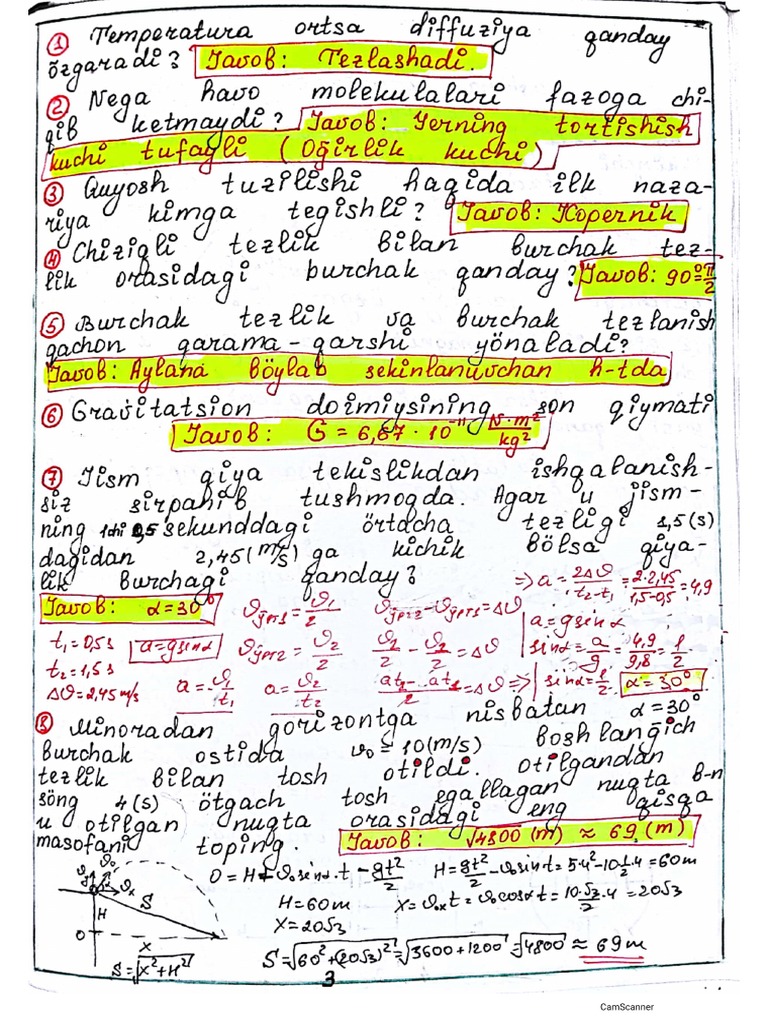 ① Temperatura ortsa diffuziya qanday
özgaradi? Javob: Tezlashadi.
② Nega havo molekulalari fazoga chi-
qib ketmaydi? Javob: Yerning tortishish
kuchi tufayli (Oğirlik kuchi)
③ Quyosh tuzilishi haqida ilk naza-
riya kimga tegishli? Javob: Kopernik
④ Chiziqli tezlik bilan burchak tez-
lik orasidagi burchak qanday? Javob: 90°=π/2
⑤ Burchak tezlik va burchak tezlanish
qachon qarama-qarshi yönaladi?
Javob: Aylana böylab sekinlanuvchan h-tda
⑥ Gravitatsion doimiysining son qiymati
Javob: G = 6,67·10⁻¹¹ N·m²/kg²
⑦ Jism qiya tekislikdan ishqalanish-
siz sirpanib tushmoqda. Agar u jism-
ning 1chi 0,5 sekunddagi örtacha tezligi 1,5(s)
dagidan 2,45(m/s) ga kichik bölsa qiya-
lik burchagi qanday? => a = 2Δϑ/(t₂-t₁) = 2·2,45/(1,5-0,5) = 4,9
Javob: α=30° ϑўрт1 = ϑ₁/2 ϑўрт2-ϑўрт1=Δϑ a=gsinα
t₁=0,5s a=gsinα ϑўрт2 = ϑ₂/2 ϑ₂/2 - ϑ₂/2 = Δϑ sinα = a/g = 4,9/9,8 = 1/2
t₂=1,5s a = ϑ₁/t₁ a = ϑ₂/t₂ at₂/2 - at₁/2 = Δϑ => sinα=1/2 α=30°
Δϑ=2,45 m/s
⑧ Minoradan gorizontga nisbatan α=30°
burchak ostida ϑ₀ = 10(m/s) boshlanğich
tezlik bilan tosh otildi. Otilgandan
söng 4(s) ötgach tosh egallagan nuqta b-n
u otilgan nuqta orasidagi eng qisqa
masofani toping. Javob: √4800 (m) ≈ 69 (m)
0 = H + ϑ₀sinα·t - gt²/2 H = gt²/2 - ϑ₀sinαt = 5·4² - 10·1/2·4 = 60m
H = 60m X = ϑ₀ₓt = ϑ₀cosαt = 10·√3/2·4 = 20√3
X = 20√3
S = √(60²+(20√3)²) = √(3600+1200) = √4800 ≈ 69m
ϑy ϑ₀ ϑₓ
H S
0 X
S = √(X²+H²)
3
CamScanner